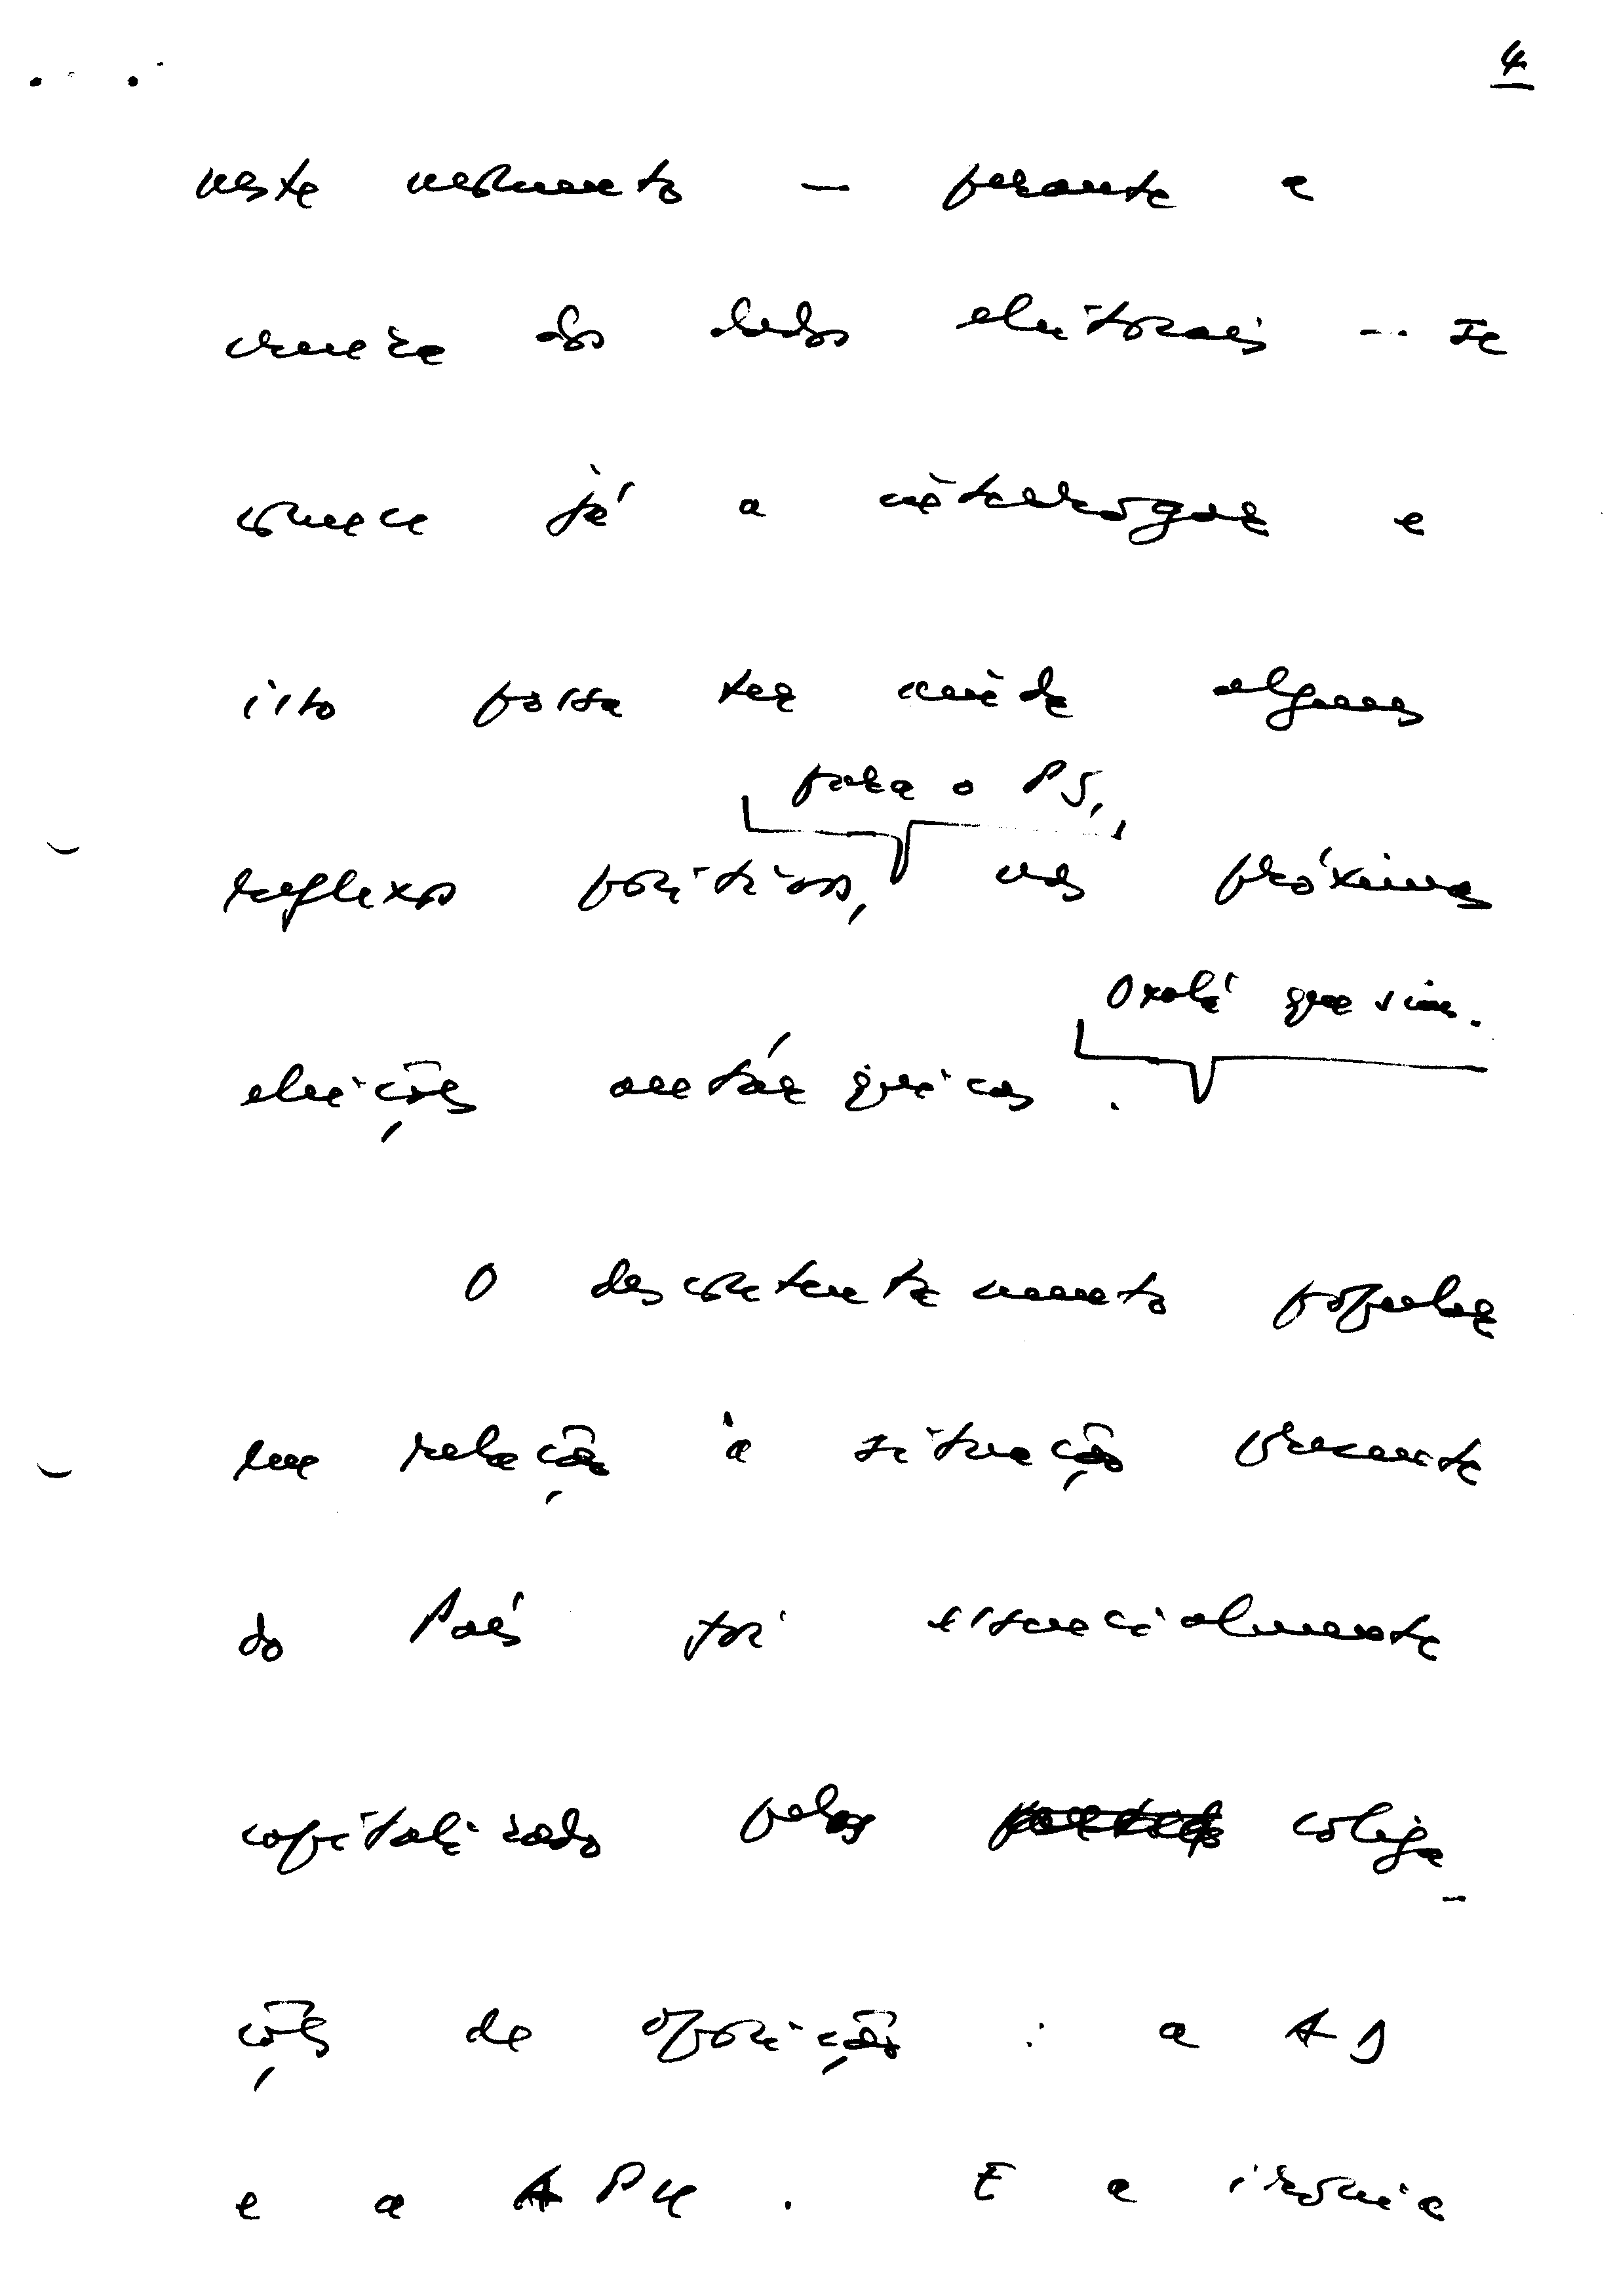 4
neste momento — perante a
crueza dos dados eleitorais -- se
comece já a interrogar e
isto possa ter ainda alguns
para o PS,
reflexos políticos, nas próximas
Oxalá que sim.
eleições autárquicas.
O descontentamento popular
em relação à situação presente
do País foi essencialmente
capitalizado pelas coliga-
ções de oposição : a AD
e a APU. E a ironia